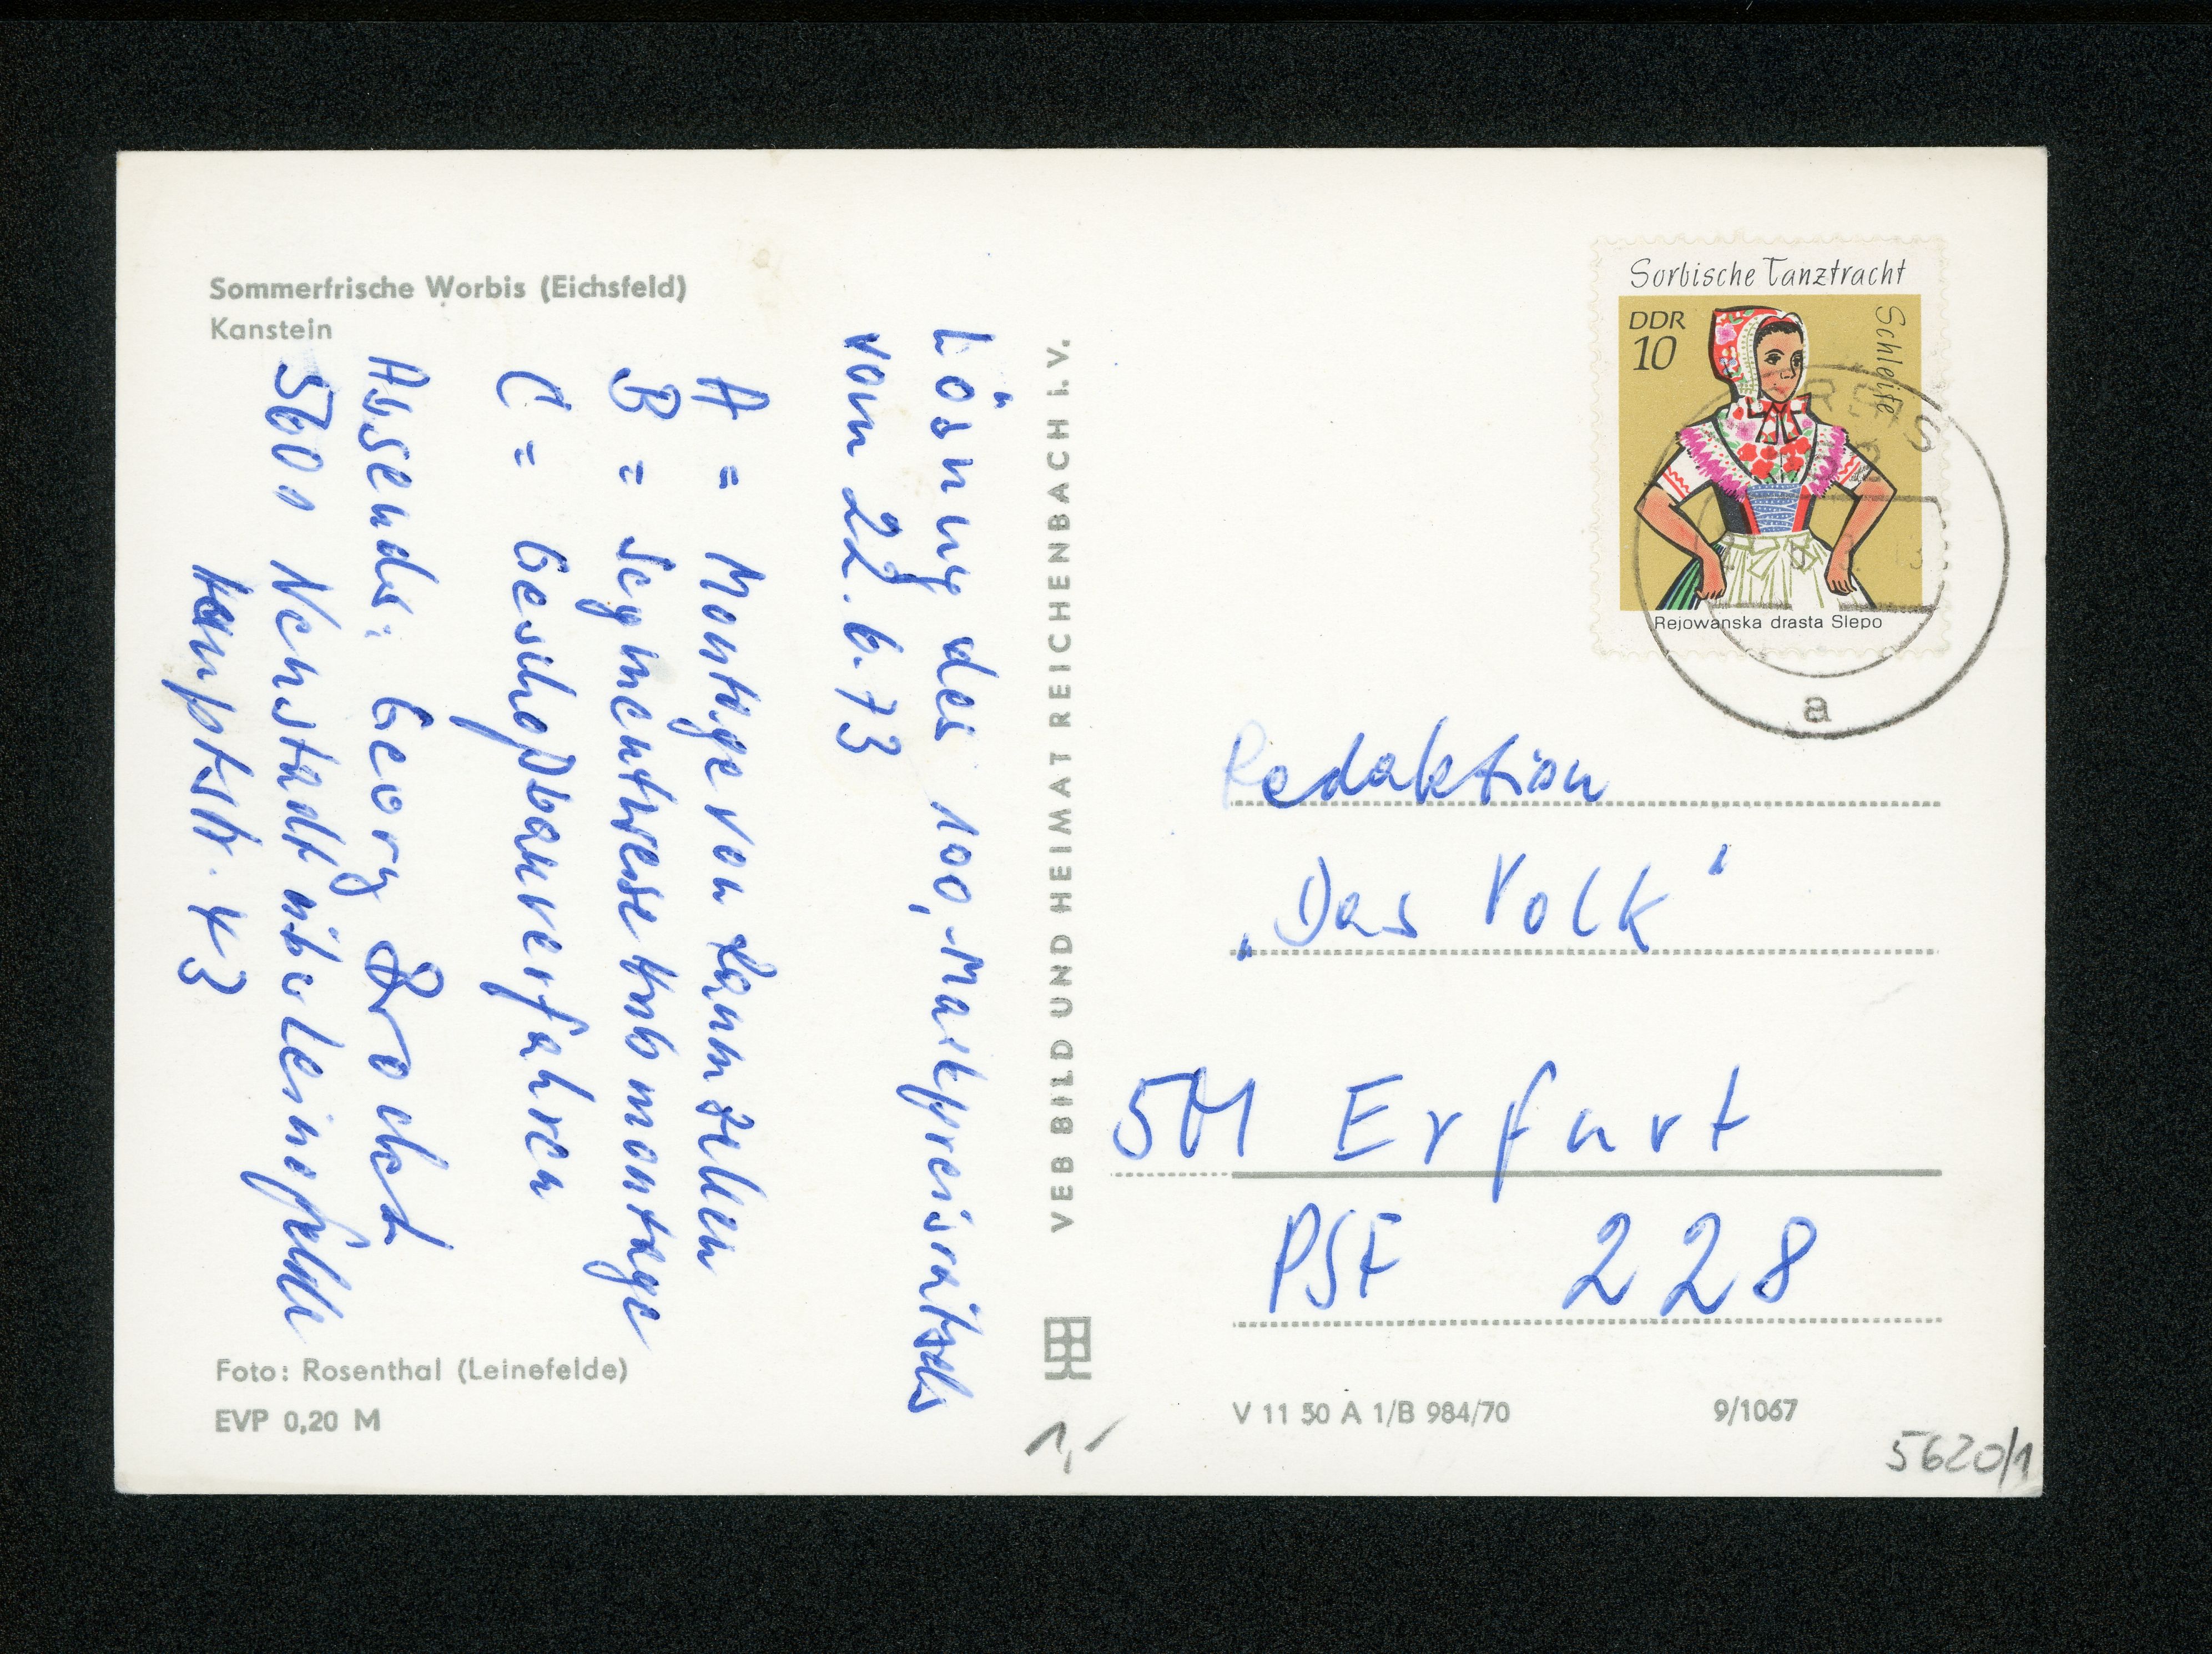 Sommerfrische Worbis (Eichsfeld)
Kanstein
Lösung des 100,-Markpreisrätsels
vom 22.6.73
A = Montage von Raumzellen
B = Segmentweise Hubmontage
C = Geschoßbauverfahren
Absender: Georg Brodest
5601 Neustadt über Leinefelde
Hauptstr. 43
Foto: Rosenthal (Leinefelde)
EVP 0,20 M
VEB BILD UND HEIMAT REICHENBACH I. V.
Sorbische Tanztracht
DDR
10
Schleife
Rejowanska drasta Slepo
a
Redaktion
„Das Volk"
501 Erfurt
PSF 228
V 11 50 A 1/B 984/70
9/1067
1,-
5620/1